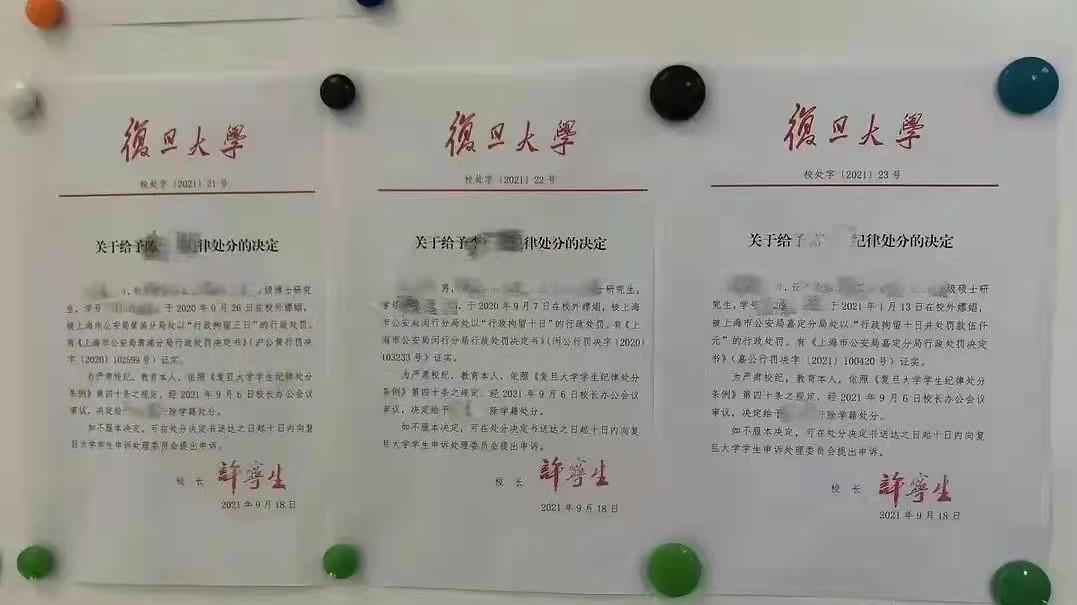 復旦大學
校处字〔2021〕21号
关于给予陈 律处分的决定
级博士研究
生，学号 于2020年9月26日在校外嫖娼，
被上海市公安局黄浦分局处以“行政拘留三日”的行政处罚。
有《上海市公安局黄浦分局行政处罚决定书》（沪公黄行罚决字
〔2020〕102599号）证实。
为严肃校纪，教育本人，依照《复旦大学学生纪律处分
条例》第四十条之规定，经2021年9月6日校长办公会议
审议，决定给 除学籍处分。
如不服本决定，可在处分决定书送达之日起十日内向复
旦大学学生申诉处理委员会提出申诉。
校 长 許寧生
2021年9月18日
復旦大學
校处字〔2021〕22号
关于给予李 律处分的决定
男， 士研究
生，学号 于2020年9月7日在校外嫖娼，被上海
市公安局闵行分局处以“行政拘留十日”的行政处罚。有《上
海市公安局闵行分局行政处罚决定书》（闵公行罚决字〔2020〕
103233号）证实。
为严肃校纪，教育本人，依照《复旦大学学生纪律处分
条例》第四十条之规定，经2021年9月6日校长办公会议
审议，决定给 除学籍处分。
如不服本决定，可在处分决定书送达之日起十日内向复
旦大学学生申诉处理委员会提出申诉。
校 长 許寧生
2021年9月18日
復旦大學
校处字〔2021〕23号
关于给予 纪律处分的决定
级硕士研
究生，学号 于2021年1月13日在校外嫖娼，
被上海市公安局嘉定分局处以“行政拘留十日并处罚款伍仟
元”的行政处罚。有《上海市公安局嘉定分局行政处罚决定
书》（嘉公行罚决字〔2021〕100420号）证实。
为严肃校纪，教育本人，依照《复旦大学学生纪律处分
条例》第四十条之规定，经2021年9月6日校长办公会议
审议，决定给予 除学籍处分。
如不服本决定，可在处分决定书送达之日起十日内向复
旦大学学生申诉处理委员会提出申诉。
校 长 許寧生
2021年9月18日